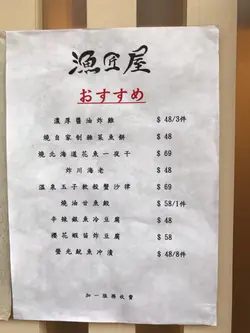 漁匠屋
おすすめ
濃厚醬油炸雞 $ 48/3件
燒自家制韮菜魚餅 $ 48
燒北海道花魚一夜干 $ 69
炸川海老 $ 48
溫泉玉子軟殼蟹沙律 $ 69
燒油甘魚鮫 $ 58/1件
辛辣銀魚冷豆腐 $ 48
櫻花蝦苗炸豆腐 $ 58
螢光魷魚沖漬 $ 48/8件
加一服務收費